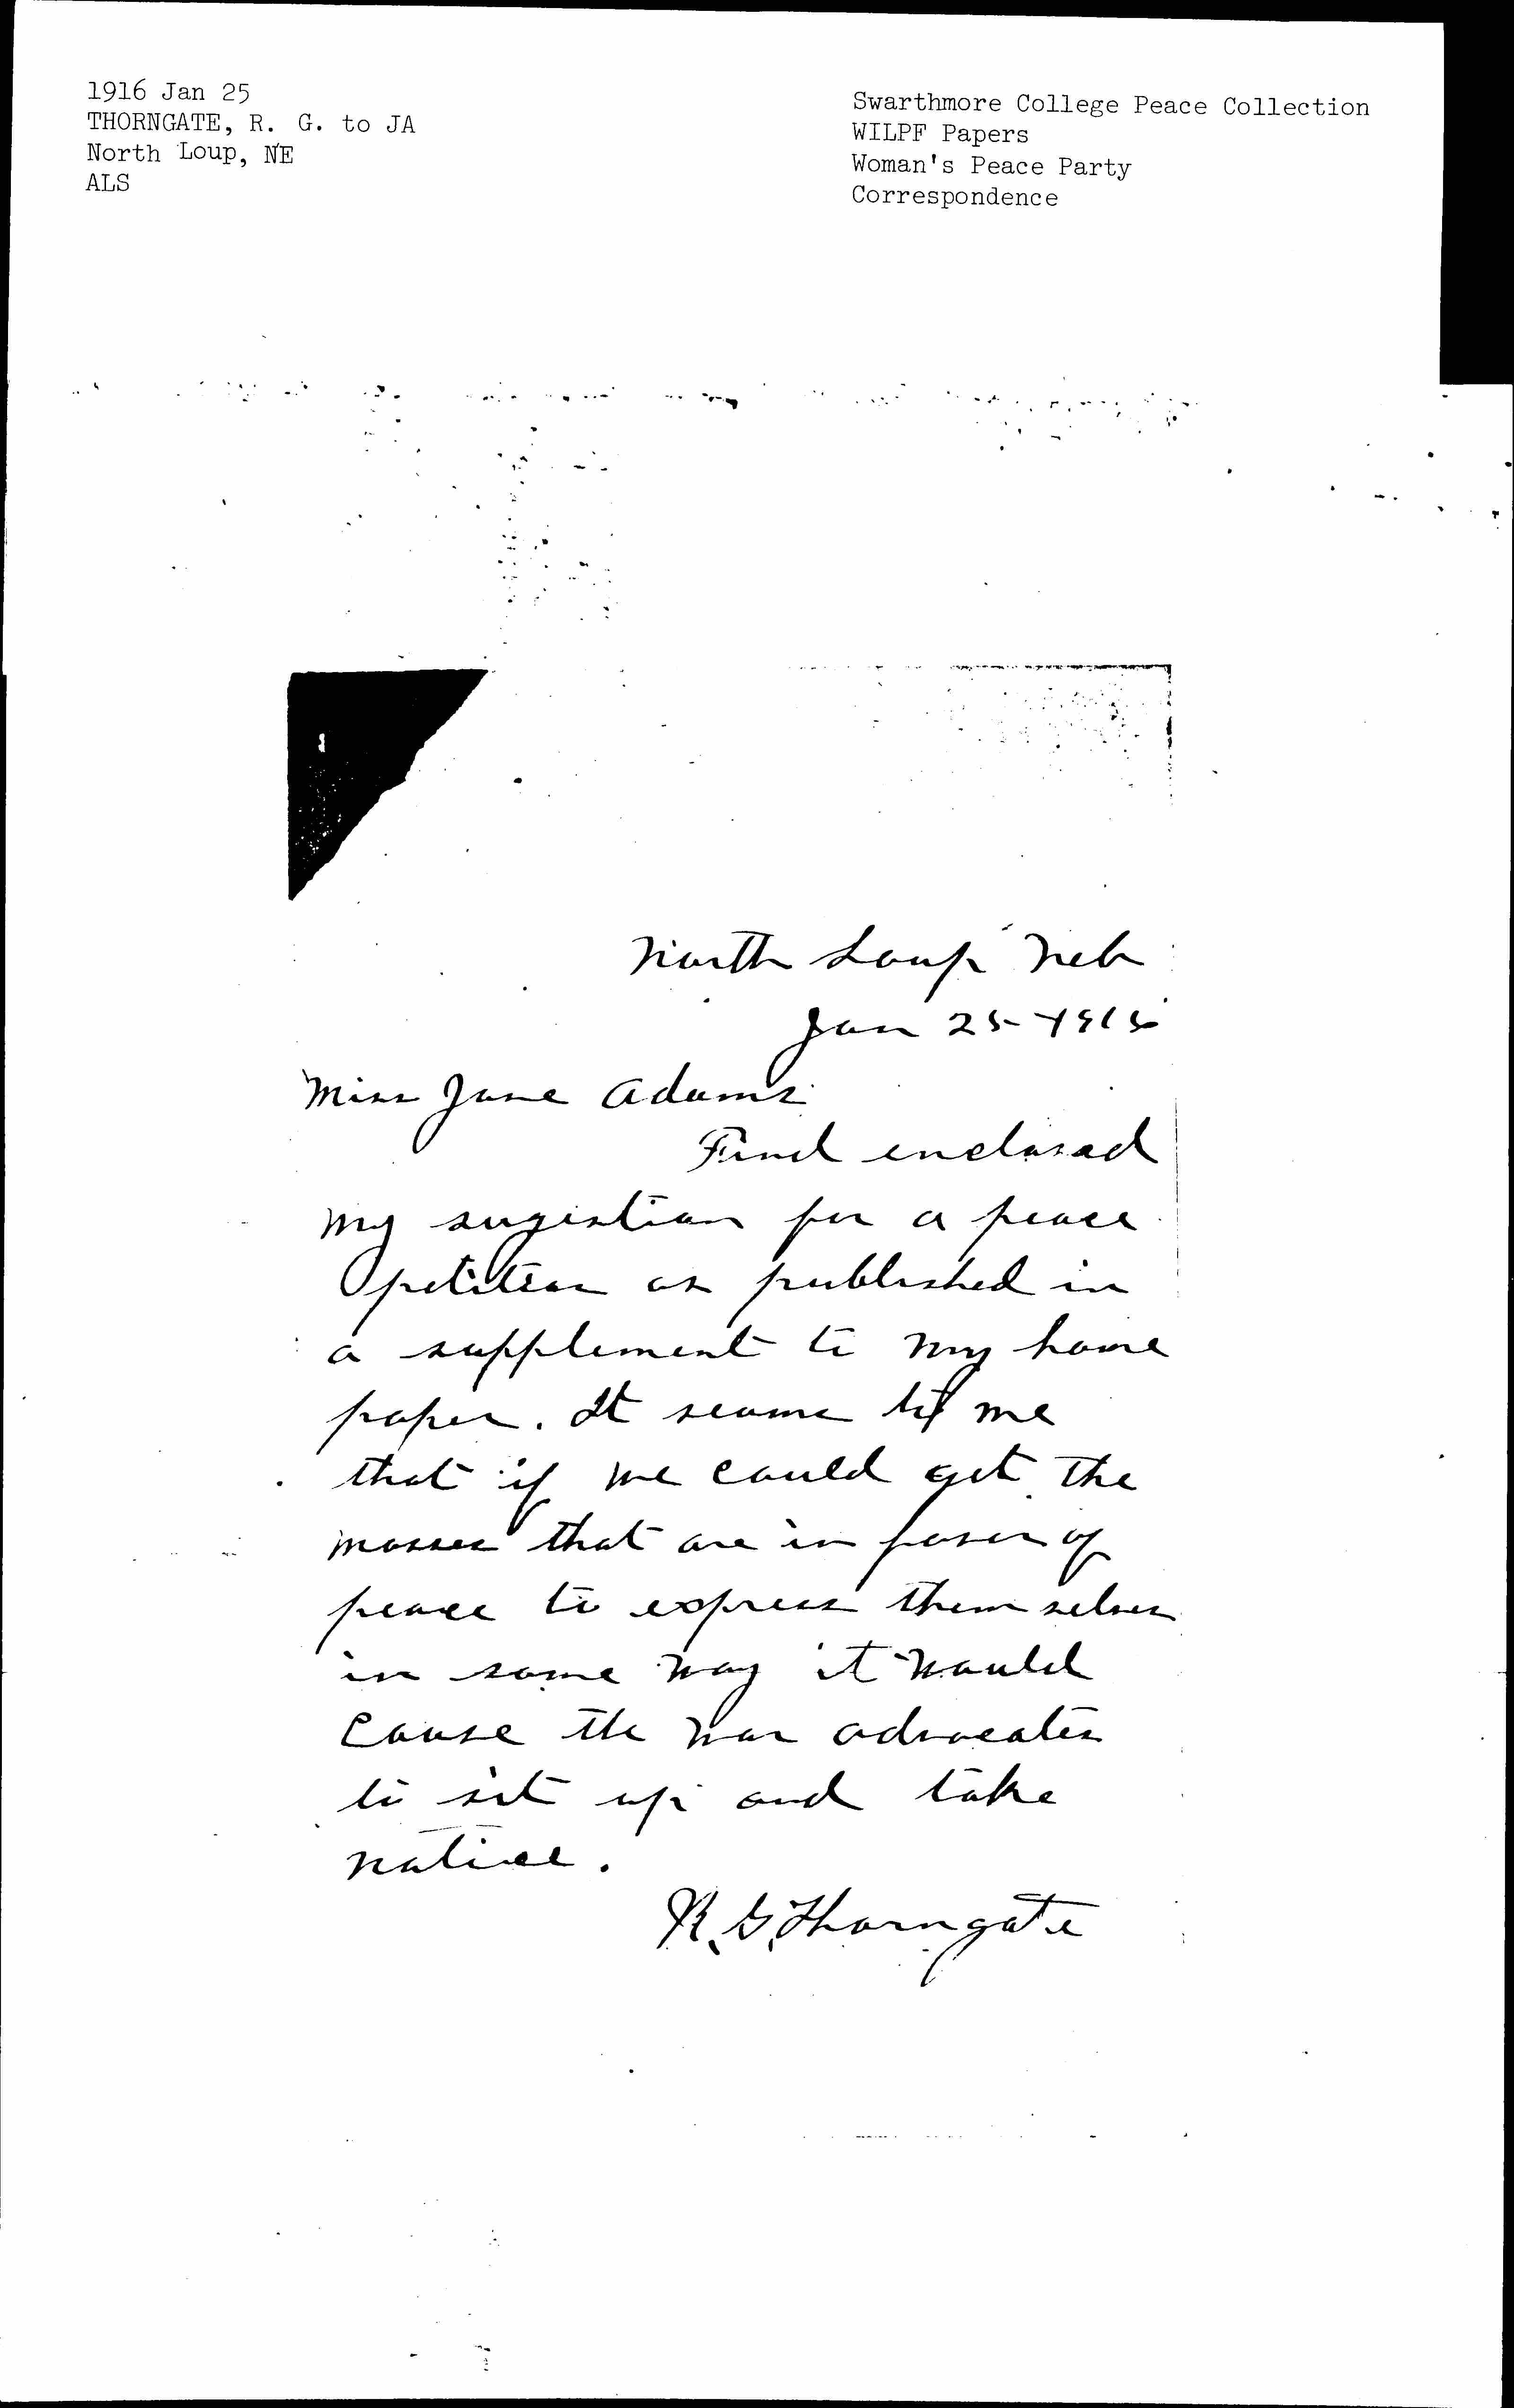 1916 Jan 25
THORNGATE, R. G. to JA
North Loup, NE
ALS
Swarthmore College Peace Collection
WILPF Papers
Woman's Peace Party
Correspondence
North Loup Neb
Jan 25-1916
Miss Jane Adams
Find enclosed
my sugestion for a peace
petition as published in
a supplement to my home
paper. It seems to me
that if we could get the
masses that are in favor of
peace to express them selves
in some way it would
cause the war advocates
to sit up and take
notice.
R. G. Thorngate